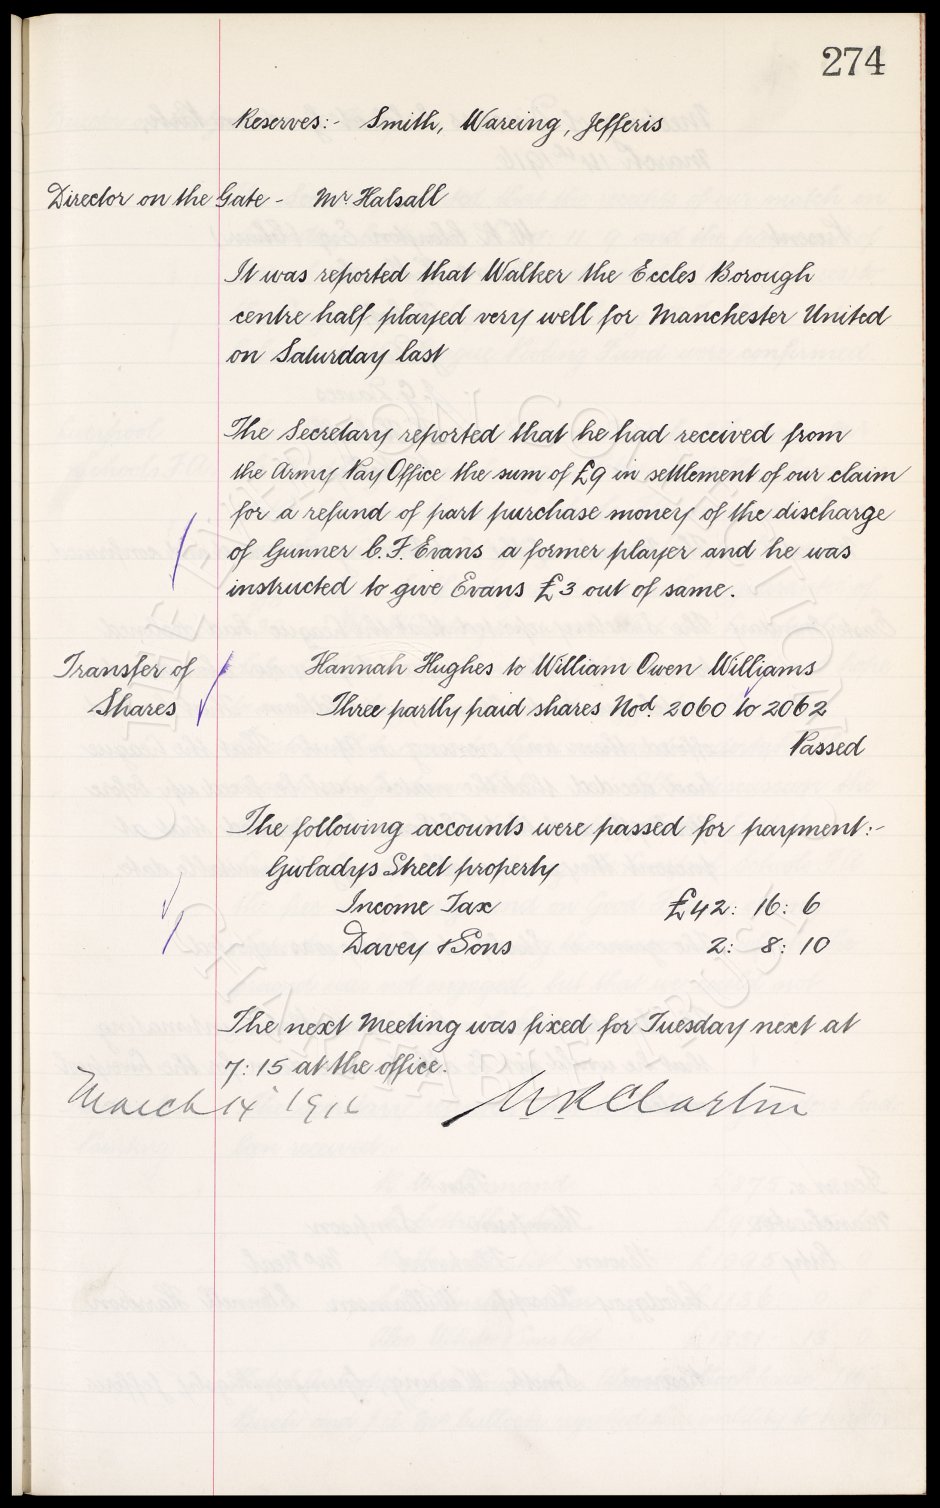 274
Reserves:- Smith, Wareing, Jefferis
Director on the Gate - Mr Halsall
It was reported that Walker the Eccles Borough
centre half played very well for Manchester United
on Saturday last
The Secretary reported that he had received from
the Army Pay Office the sum of £9 in settlement of our claim
for a refund of part purchase money of the discharge
of Gunner C. F. Evans a former player and he was
instructed to give Evans £3 out of same.
Transfer of Hannah Hughes to William Owen Williams
Shares Three partly paid shares Nod. 2060 to 2062
Passed
The following accounts were passed for payment:-
Gwladys Street property
Income Tax £42: 16: 6
Davey & Sons 2: 8: 10
The next Meeting was fixed for Tuesday next at
7:15 at the office.
March 14 1916 W R Clayton